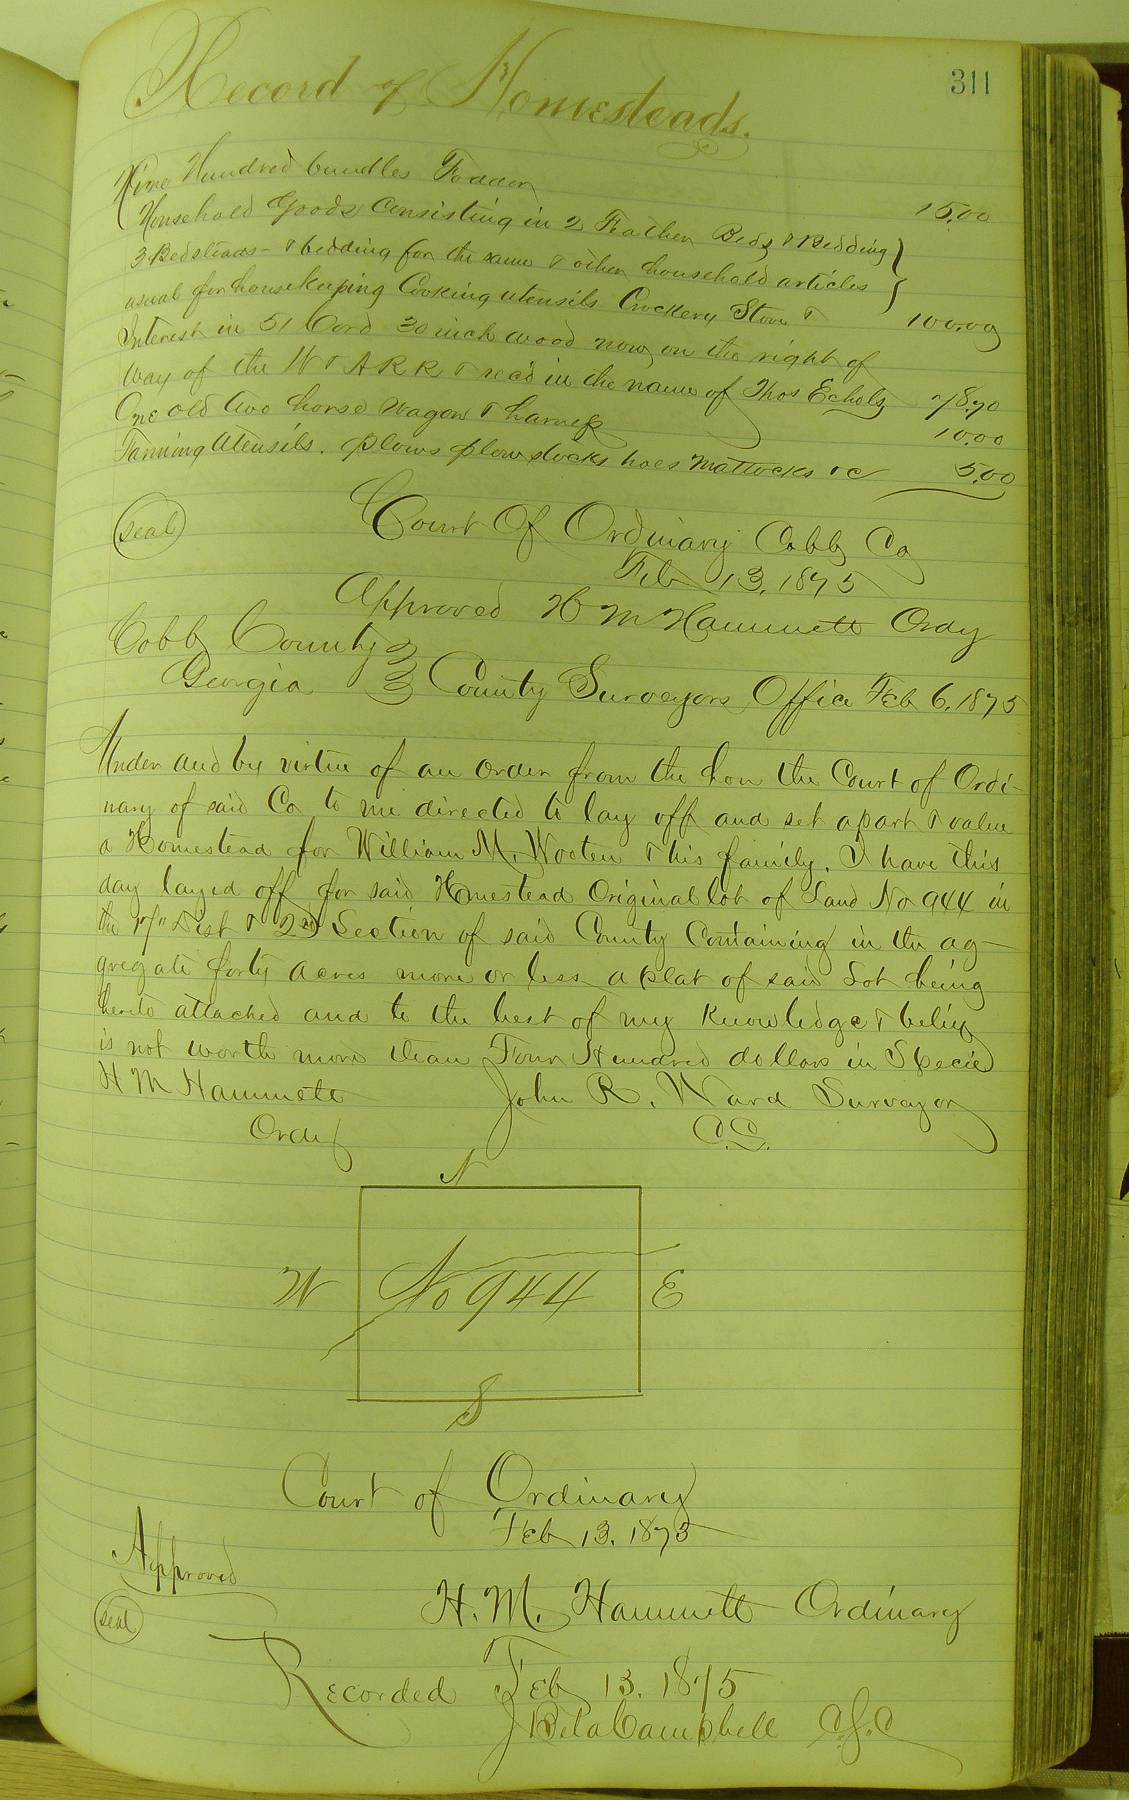 311
Record of Homesteads.
Nine Hundred bundles Fodder 15.00
Household Goods Consisting in 2 Feather Beds & Bedding
3 Bedsteads & bedding for the same & other household articles
usual for housekeeping Cooking utensils Crockery Stove & 100.00
Interest in 51 Cord 30 inch wood now on the right of
way of the W & A R R & rec'd in the name of Thos Echols 78.70
One old two horse wagon & harness 10.00
Farming Utensils. plows plowstocks hoes mattocks &c 5.00
seal
Court Of Ordinary Cobb Co
Feb 13, 1875
Approved H M Hammett Ordy
Cobb County
Georgia County Surveyors Office Feb 6, 1875
Under and by virtue of an order from the hon the Court of Ordi-
nary of said Co to me directed to lay off and set apart & value
a Homestead for William M. Wooten & his family. I have this
day layed off for said Homestead Original lot of Land No 944 in
the 17" Dist & 2nd Section of said County Containing in the ag-
gregate forty acres more or less a plat of said Lot being
hereto attached and to the best of my Knowledge & belief
is not worth more than Four Hundred dollars in Specie
H M Hammett John R. Ward Surveyor
Ordy C.S.
N
W No 944 E
S
Court of Ordinary
Feb 13. 1875
Approved
seal
H. M. Hammett Ordinary
Recorded Feb 13. 1875
J Bela Campbell